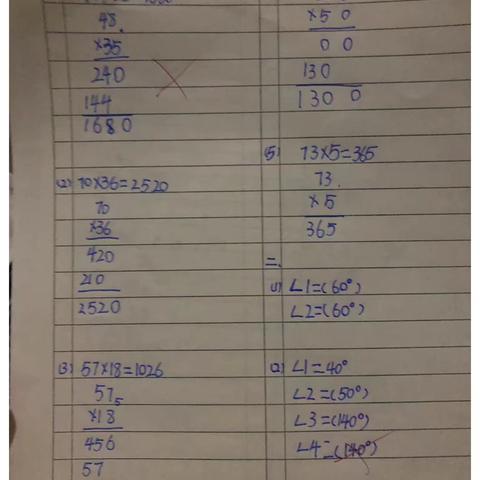 48
×35
240
144
1680
(2) 70×36=2520
70
×36
420
210
2520
(3) 57×18=1026
57
×18
456
57
×50
00
130
1300
(5) 73×5=365
73
×5
365
二.
(1) ∠1=(60°)
∠2=(60°)
(2) ∠1=40°
∠2=(50°)
∠3=(140°)
∠4=(140°)